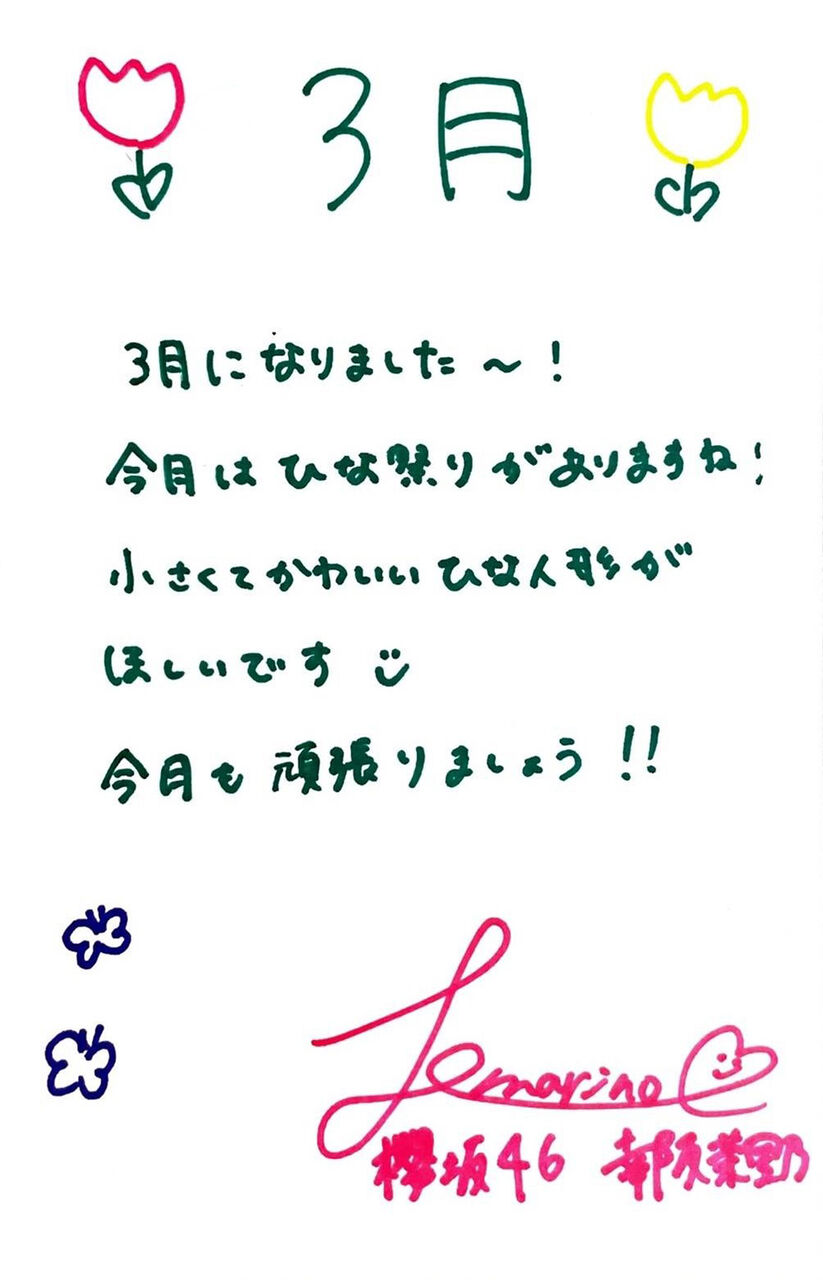 3月
3月になりました〜!
今月はひな祭りがありますね!
小さくてかわいいひな人形が
ほしいです
今月も頑張りましょう!!
marino
欅坂46 幸阪茉里乃